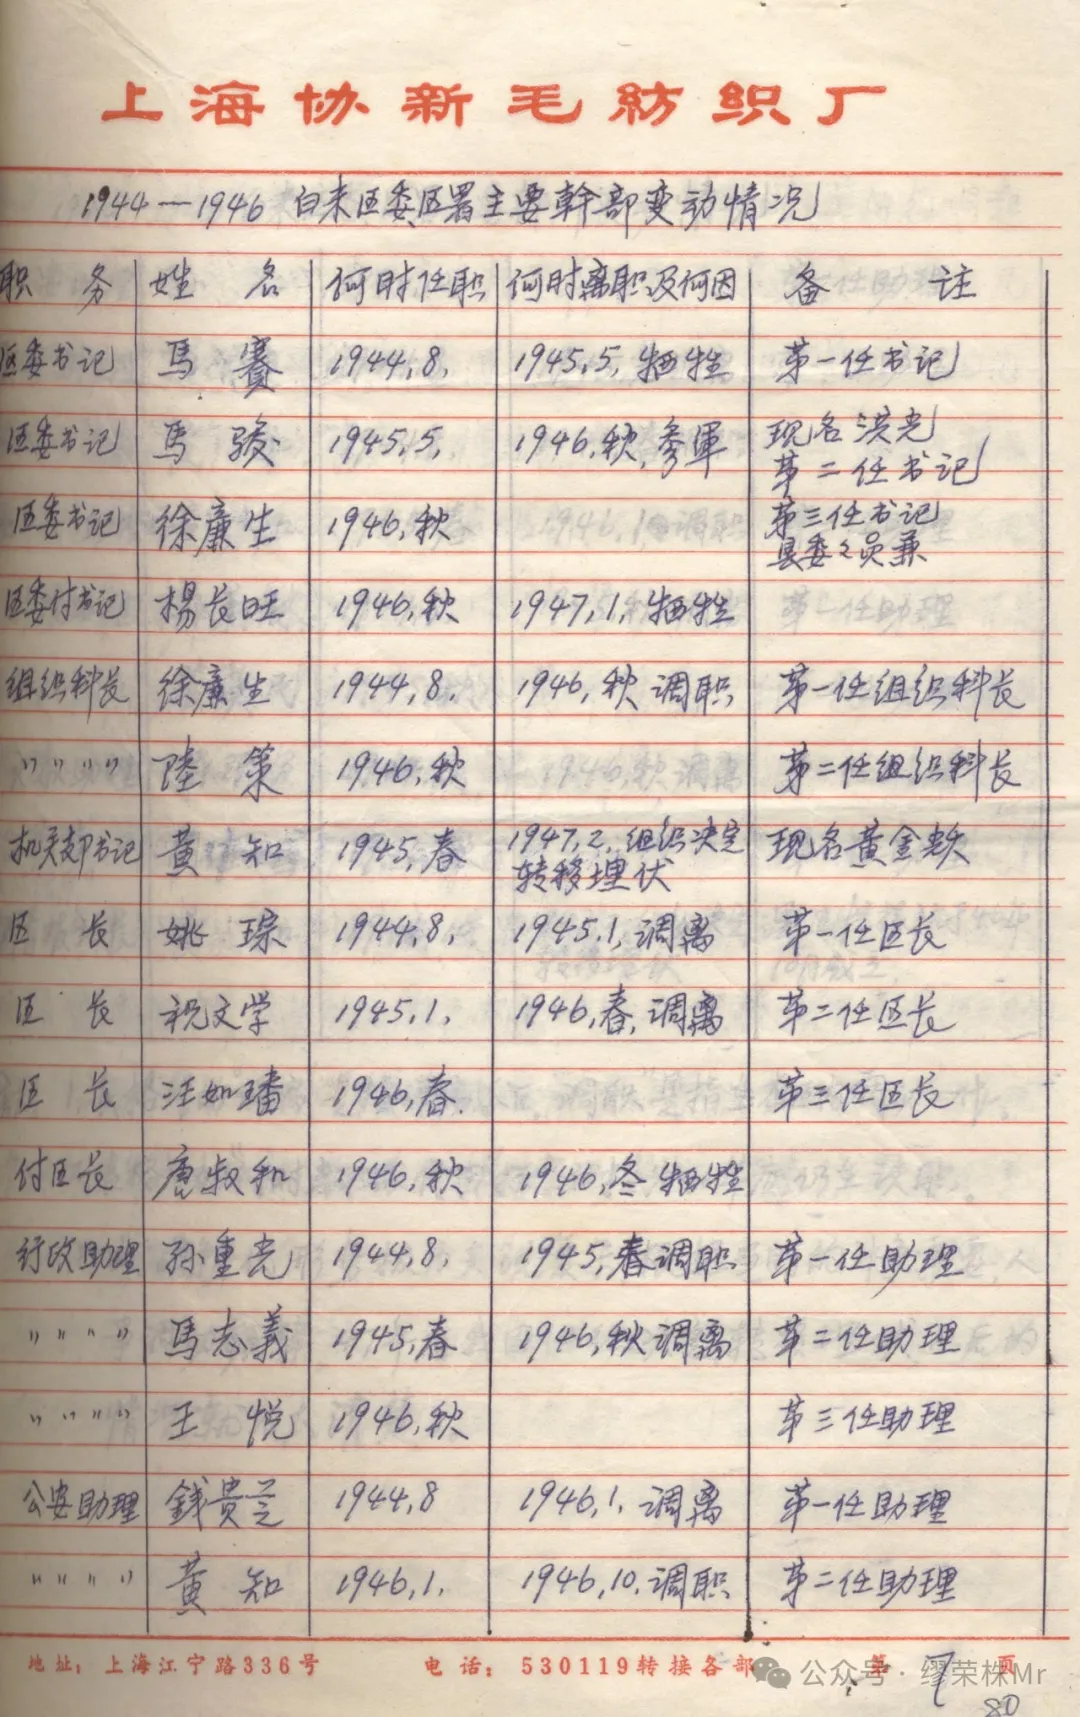 上海协新毛紡织厂
1944—1946 白来区委区署主要幹部变动情况
职务 姓名 何时任职 何时离职及何因 备注
区委书记 馬賽 1944,8, 1945,5,牺牲 第一任书记
区委书记 馬骏 1945,5, 1946,秋,参軍 现名洪光
第二任书记
区委书记 徐廉生 1946,秋 第三任书记
县委々员兼
区委付书记 楊长旺 1946,秋 1947,1,牺牲
组织科长 徐廉生 1944,8, 1946,秋调职 第一任组织科长
〃〃〃〃 陸策 1946,秋 第二任组织科长
机关支部书记 黄知 1945,春 1947,2,组织决定
转移埋伏 现名黄金
区长 姚琮 1944,8, 1945.1,调离 第一任区长
区长 祝文学 1945,1, 1946,春,调离 第二任区长
区长 汪如璠 1946,春. 第三任区长
付区长 唐叔和 1946,秋 1946,冬牺牲
行政助理 孙重光 1944,8, 1945,春调职 第一任助理
〃〃〃〃 馬志義 1945,春 1946,秋调离 第二任助理
〃〃〃〃 王悦 1946,秋 第三任助理
公安助理 錢貴芝 1944,8 1946,1,调离 第一任助理
〃〃〃〃 黄知 1946,1, 1946,10,调职 第二任助理
地址：上海江宁路336号 电话：530119转接各部 第7页
公众号·缪荣株Mr
80